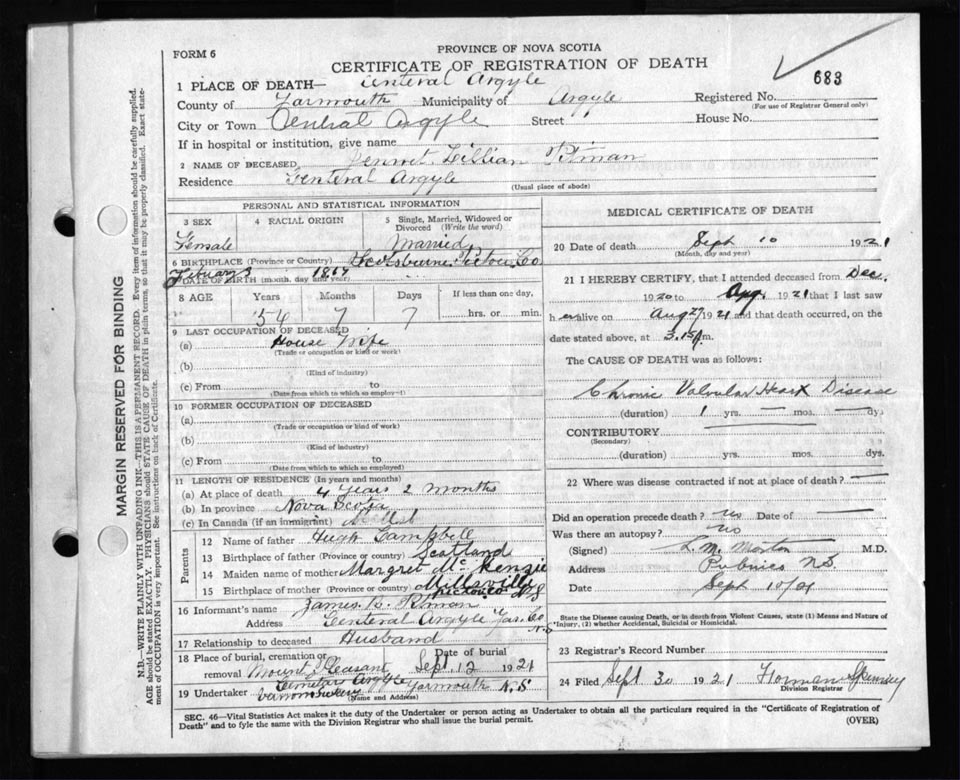 FORM 6
PROVINCE OF NOVA SCOTIA
CERTIFICATE OF REGISTRATION OF DEATH
683
1 PLACE OF DEATH— Centeral Argyle
County of Yarmouth Municipality of Argyle Registered No.
(For use of Registrar General only)
City or Town Central Argyle Street House No.
If in hospital or institution, give name
2 NAME OF DECEASED Lillian Pitman
Residence Centeral Argyle
(Usual place of abode)
PERSONAL AND STATISTICAL INFORMATION
3 SEX 4 RACIAL ORIGIN 5 Single, Married, Widowed or Divorced (Write the word)
Female Married
6 BIRTHPLACE (Province or Country) Pictou Co
7 DATE OF BIRTH (month, day and year) Febuary 3 1867
8 AGE Years Months Days If less than one day,
54 7 7 hrs. or min.
9 LAST OCCUPATION OF DECEASED
(a) House Wife
(Trade or occupation or kind of work)
(b)
(Kind of industry)
(c) From to
(Date from which to which so employed)
10 FORMER OCCUPATION OF DECEASED
(a)
(Trade or occupation or kind of work)
(b)
(Kind of industry)
(c) From to
(Date from which to which so employed)
11 LENGTH OF RESIDENCE (In years and months)
(a) At place of death 4 years 2 months
(b) In province Nova Scotia
(c) In Canada (if an immigrant)
Parents
12 Name of father Hugh Campbell
13 Birthplace of father (Province or country) Scotland
14 Maiden name of mother Margret McKenzie
15 Birthplace of mother (Province or country) Millsville
Pictou Co N S
16 Informant's name James Pitman
Address Centeral Argyle Yar. Co
N.S
17 Relationship to deceased Husband
18 Place of burial, cremation or removal Mount Pleasant Date of burial Sept 12 1921
Cemitary Argyle
19 Undertaker Vernon Sweeny Yarmouth N.S
(Name and Address)
MEDICAL CERTIFICATE OF DEATH
20 Date of death Sept 10 1921
(Month, day and year)
21 I HEREBY CERTIFY, that I attended deceased from Dec.
1920 to Aug. 1921 that I last saw
her alive on Aug 27 1921 and that death occurred, on the
date stated above, at m.
The CAUSE OF DEATH was as follows:
Chronic Valvular Heart Disease
(duration) 1 yrs. — mos. — dys.
CONTRIBUTORY
(Secondary)
(duration) yrs. mos. dys.
22 Where was disease contracted if not at place of death? —
Did an operation precede death? no Date of —
Was there an autopsy? no
(Signed) L. M. Morton M.D.
Address Pubnico N S
Date Sept 10/21
State the Disease causing Death, or in death from Violent Causes, state (1) Means and Nature of Injury, (2) whether Accidental, Suicidal or Homicidal.
23 Registrar's Record Number
24 Filed Sept 30 1921
Division Registrar
SEC. 46—Vital Statistics Act makes it the duty of the Undertaker or person acting as Undertaker to obtain all the particulars required in the "Certificate of Registration of
Death" and to fyle the same with the Division Registrar who shall issue the burial permit. (OVER)
MARGIN RESERVED FOR BINDING
N.B.—WRITE PLAINLY WITH UNFADING INK—THIS IS A PERMANENT RECORD. Every item of information should be carefully supplied.
AGE should be stated EXACTLY. PHYSICIANS should STATE CAUSE OF DEATH in plain terms, so that it may be properly classified. Exact state-
ment of OCCUPATION is very important. See instructions on back of Certificate.